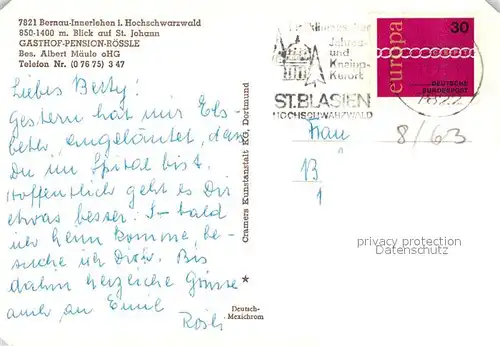 7821 Bernau-Innerlehen i. Hochschwarzwald
850-1400 m. Blick auf St. Johann
GASTHOF-PENSION-RÖSSLE
Bes. Albert Mäule oHG
Telefon Nr. (0 76 75) 3 47
Liebes Betty!
Gestern hat mir Els-
beter angeläutet, dass
Du im Spital bist.
Hoffentlich geht es Dir
etwas besser. So bald
ich heim komme, be-
suche ich Dich. Bis
dahin herzliche Grüsse
auch an Emil
Rösli
Cramers Kunstanstalt KG, Dortmund
Deutsch-
Mexichrom
Jahres-
und
Kneipp-
Kurort
ST. BLASIEN
HOCHSCHWARZWALD
7822
europa
30
DEUTSCHE
BUNDESPOST
Frau
B
8/63
privacy protection
watermark